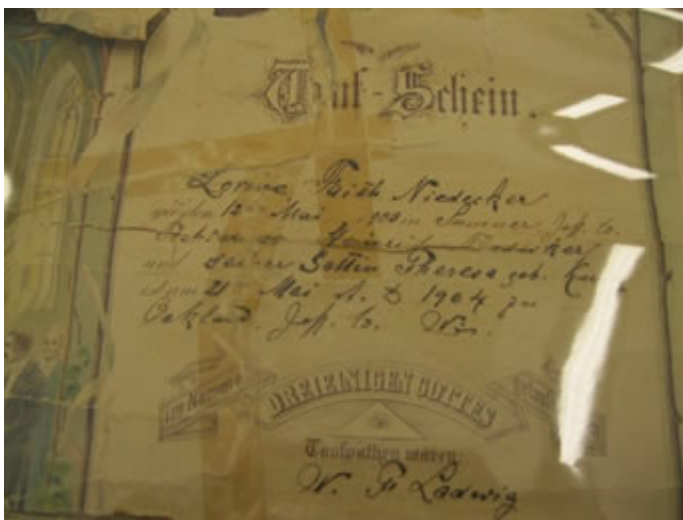 Tauf-Schein.
Lorine Faith Niedecker
12 Mai in Sumner, Jeff. Co.
Heinrich Niedecker
und seiner Gattin Theresa geb.
am 21 Mai A. D. 1904 zu
Oakland. Jeff. Co. Wis.
Im Namen
DREIEINIGEN GOTTES
Taufpathen waren
W. F. Ladwig